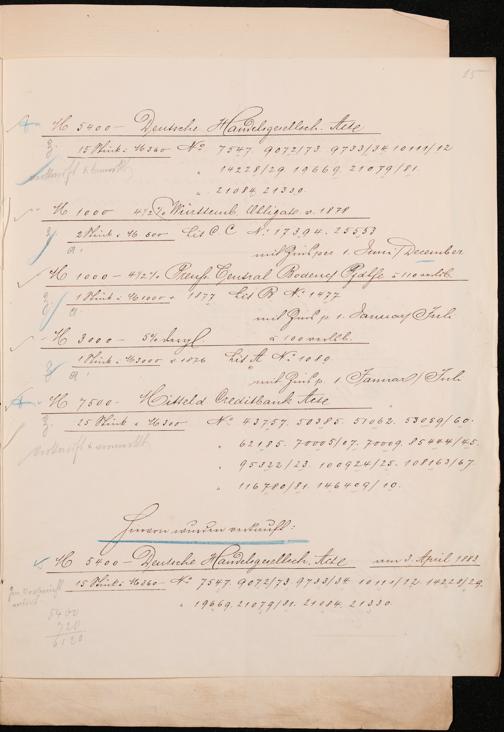 15
M 5400 – Deutsche Handelsgesellsch. Acte
15 Stück à M 360 No 7547. 9072/73. 9733/34. 10111/12
" 14228/29. 19669. 21079/81.
" 21084. 21330.
M 1000 – 4½% Württemb. Obligat. v. 1878
2 Stück à M 500 Lit C C No 17394. 25553
mit Zins per 1. Juni/December
M 1000 – 4½% Preuß. Central Boden Pfdbfe à 110 verlb.
1 Stück à M 1000 v. 1877 Lit B No 1477
mit Zins p. 1 Januar/Juli
M 3000 – 5% à 100 verlb.
1 Stück à M 3000 v. 1876 Lit A No 1080.
mit Zins p. 1 Januar/Juli
M 7500 – Mitteld Creditbank Acte
25 Stück à M 300 No 43757. 50385. 51062. 53059/60.
" 62185. 70005/07. 70009. 85444/45.
" 95322/23. 100924/25. 108163/67.
" 116780/81. 146409/10.
Hiervon wurden verkauft:
M 5400 – Deutsche Handelsgesellsch. Acte am 3. April 1882
15 Stück à M 360 No 7547. 9072/73 9733/34. 10111/12. 14228/29.
" 19669. 21079/81. 21084. 21330.
5400
720
6120